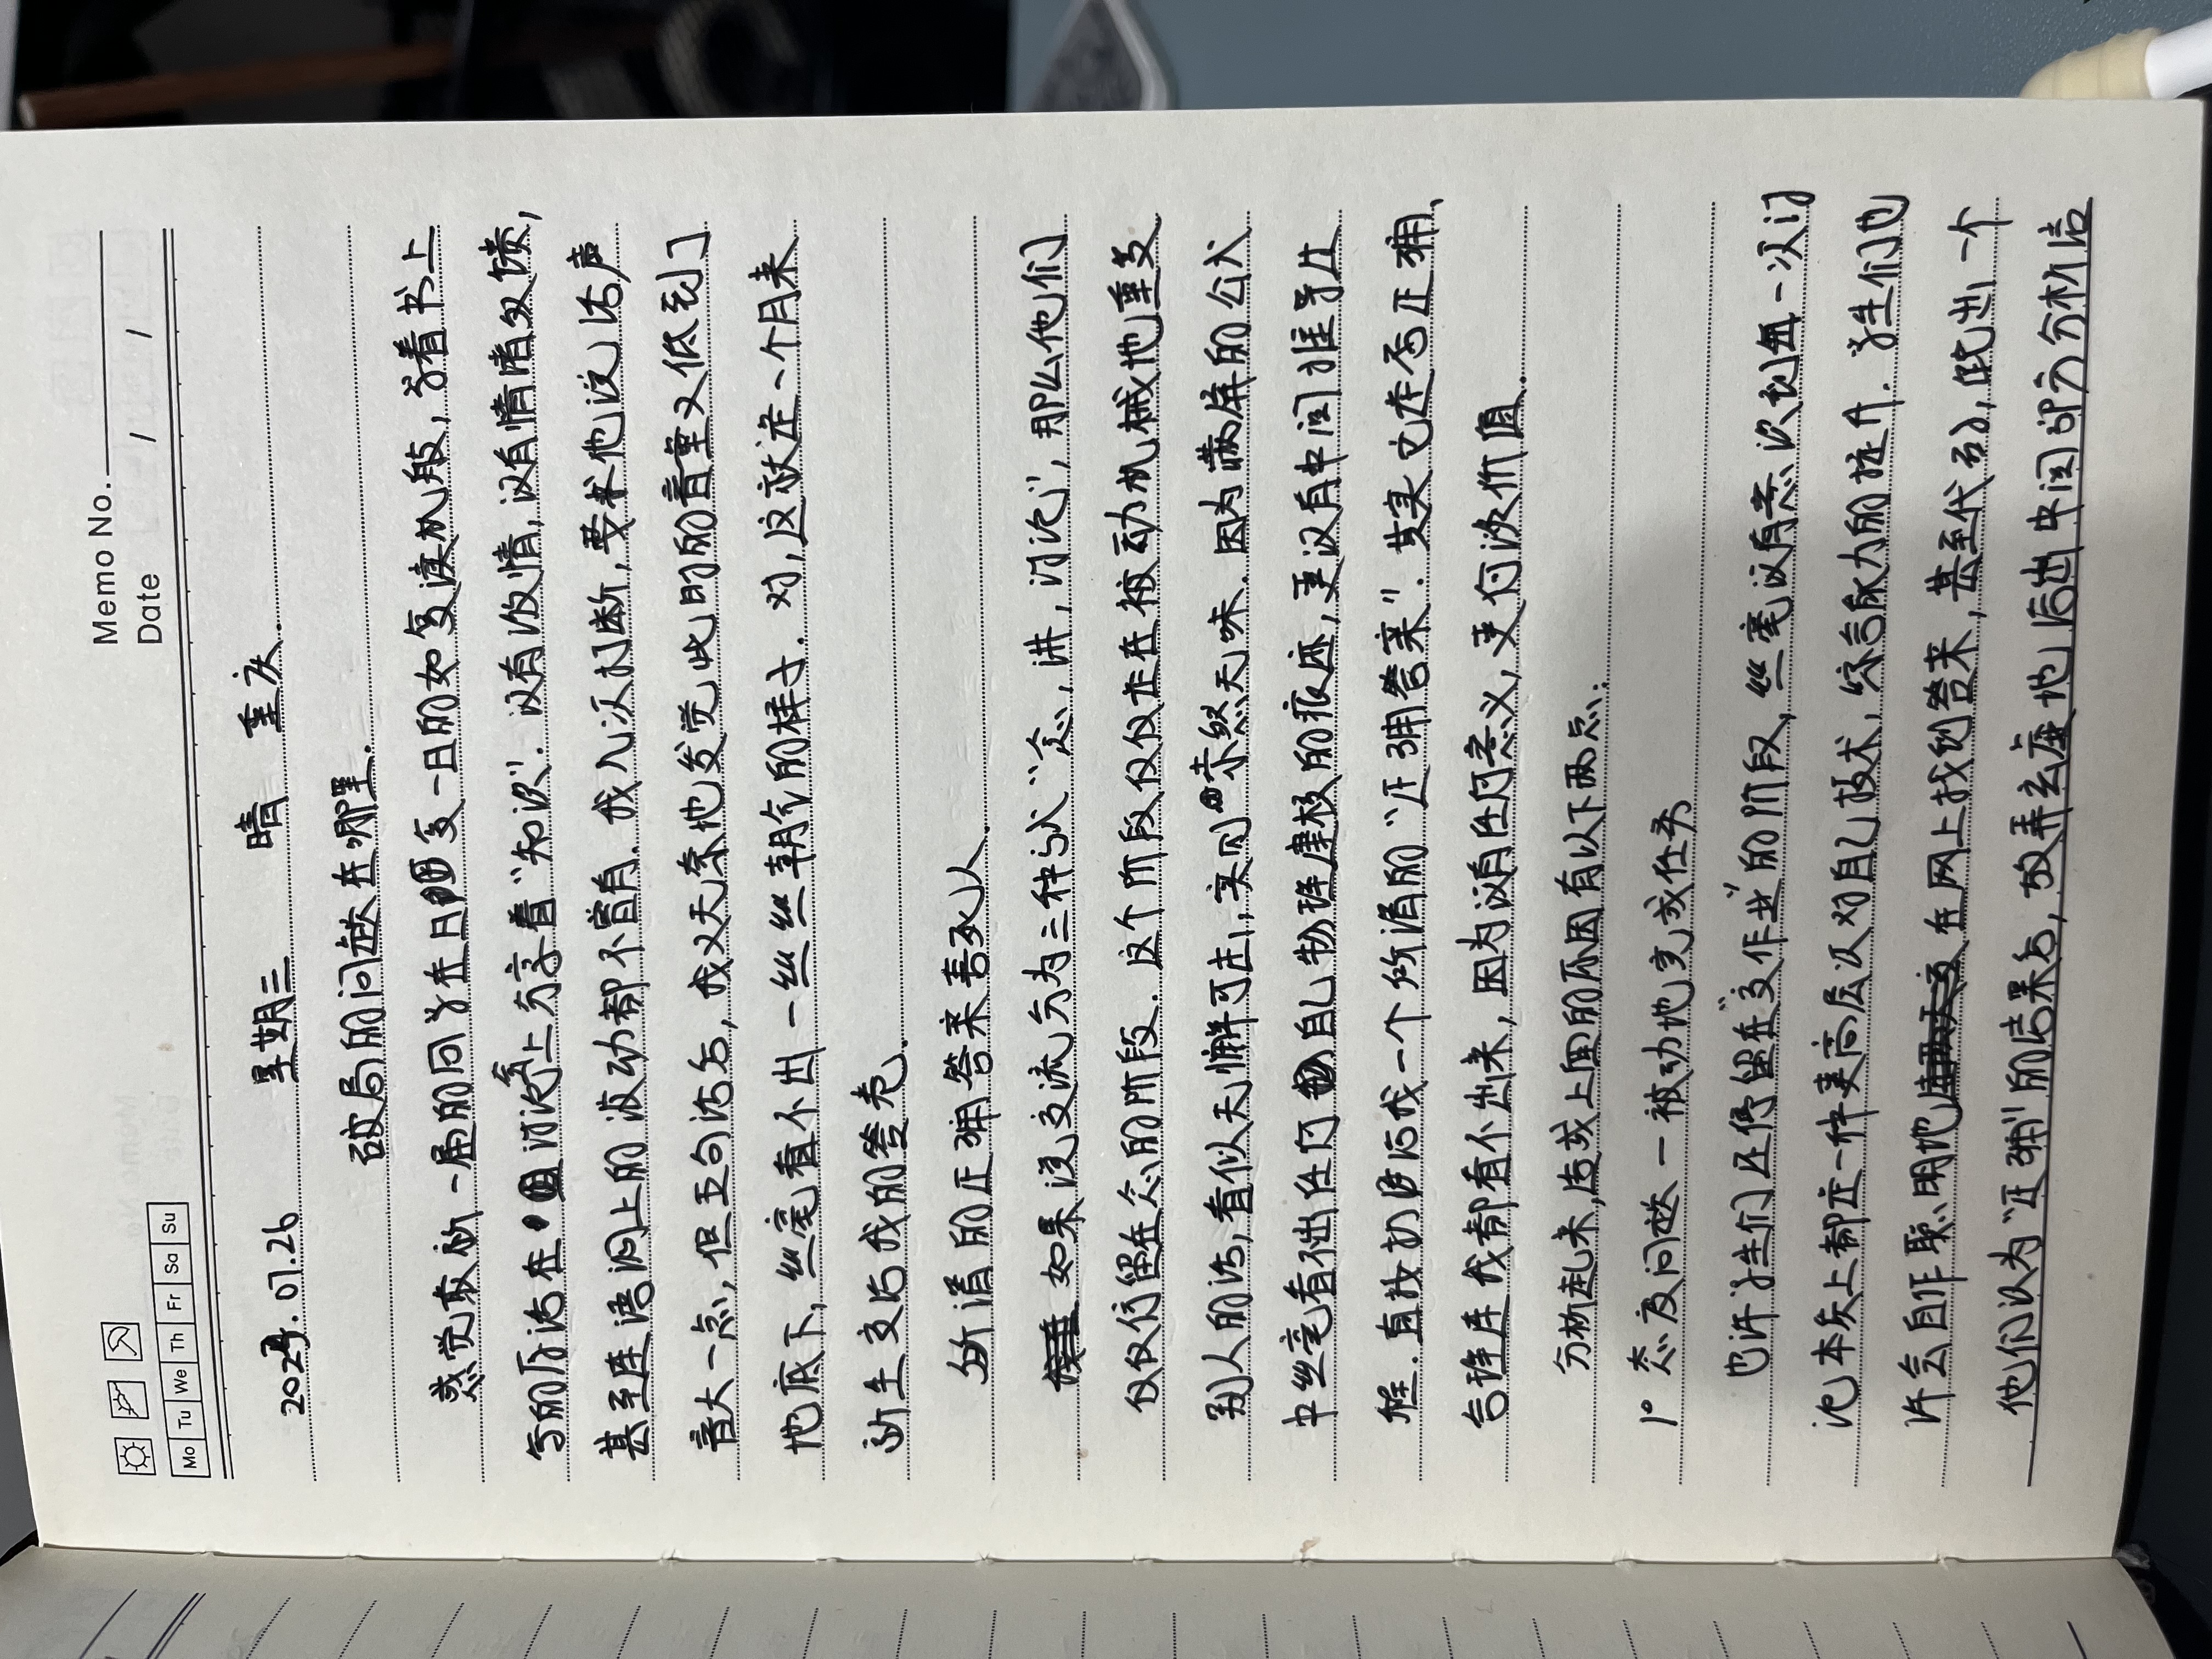 Memo No.
Date / /
Mo Tu We Th Fr Sa Su
2023.07.26 星期三 晴 重庆.
破局的问题在哪里.
感觉最新一届的同学在日复一日的如复读机般, 学着书上
写的原话在讨论会上分享着“知识”. 没有激情, 没有情绪反馈,
甚至连语调上的波动都不曾有. 我几次打断, 要求他说话声
音大一点, 但五句话后, 我又无奈地发觉此时的音量又低到了
地底下, 丝毫看不出一丝丝朝气的样子. 对, 这就是一个月来
新生交给我的答卷.
所谓的正确答案害死人.
如果说交流分为三种式“念, 讲, 讨论”, 那么他们
仅仅停留在念的阶段. 这个阶段仅仅是在被动机械地重复
别人的话, 看似无懈可击, 实则索然无味. 因为满屏的公式
中丝毫看不出任何自己物理建模的痕迹, 更没有中间推导过
程. 直接扔给我一个所谓的“正确答案”. 其实它是否正确,
合理连我都看不出来, 因为没有任何意义, 更何谈价值.
分析起来, 造成上面的原因有以下两点:
1° 态度问题 — 被动地完成任务
也许学生们还停留在“交作业”的阶段, 丝毫没有意识到每一次讨
论本质上都是一种更高层次对自己技术, 综合能力的提升. 学生们也
许会自作聪明地在网上找到答案, 甚至代码, 跑出一个
他们认为“正确”的结果后, 故弄玄虚地给出中间部分分析结